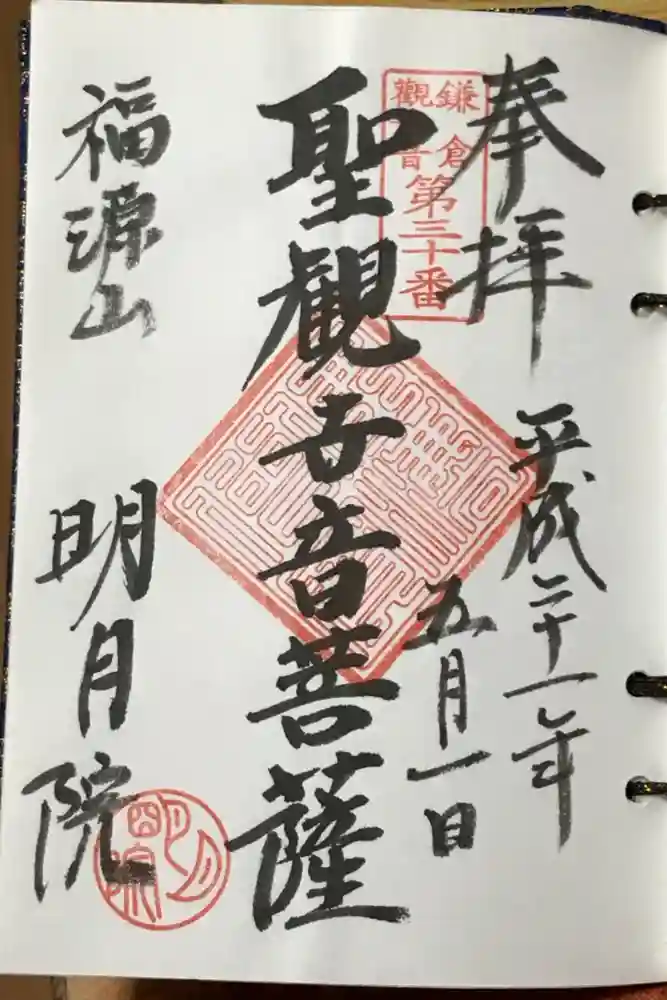 奉拝
平成二十一年
五月一日
鎌倉
觀音
第三十番
聖観世音菩薩
福源山
明月院